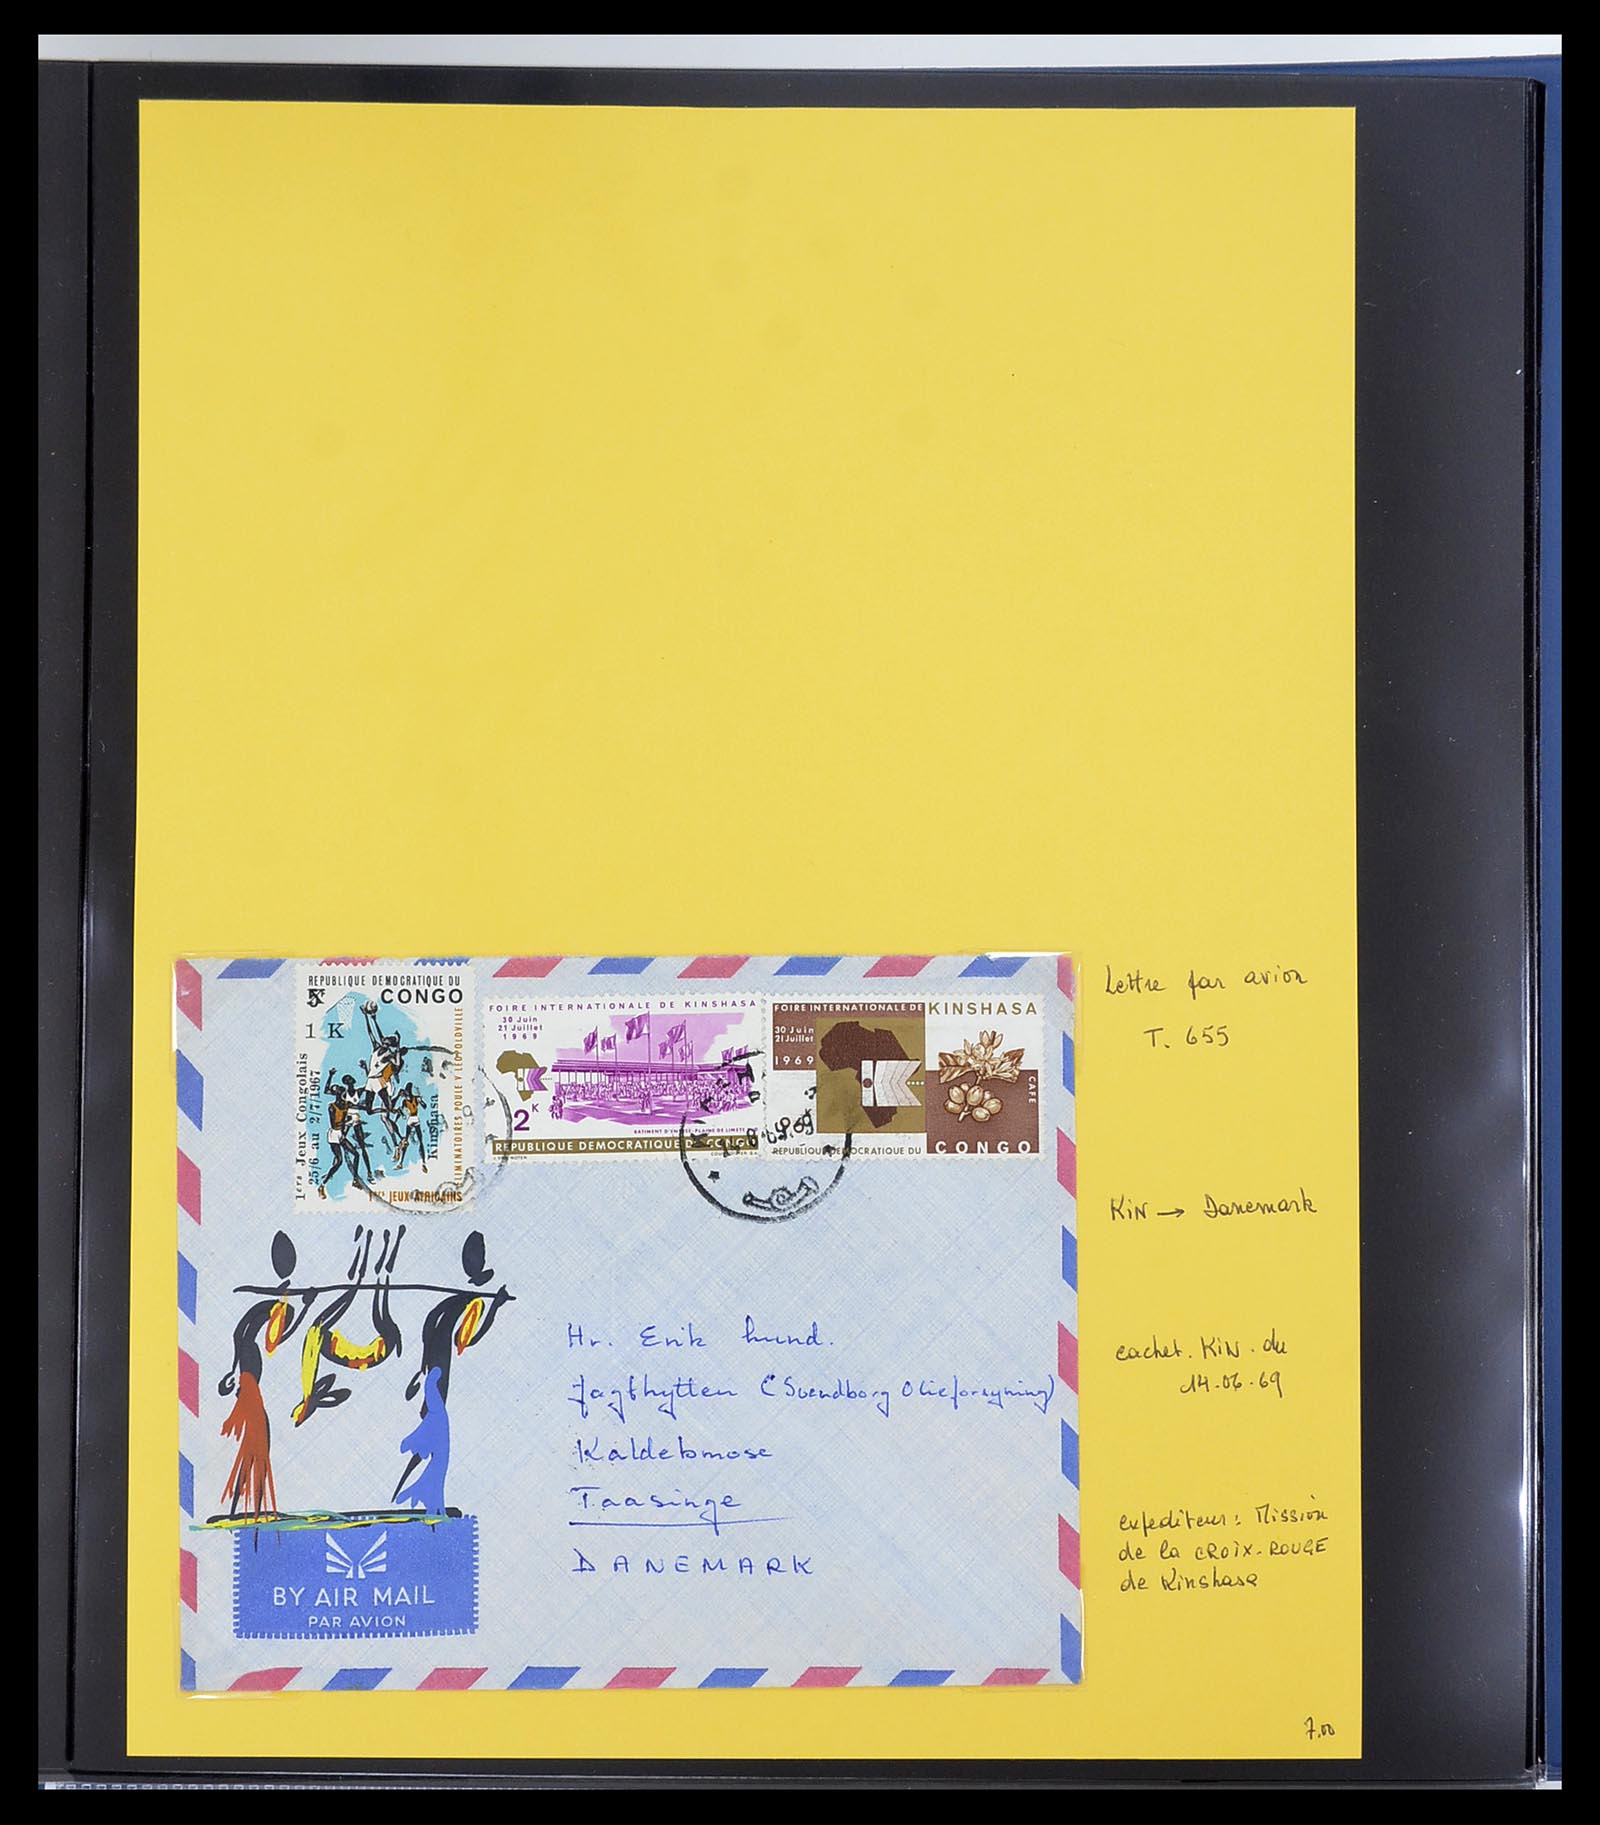 REPUBLIQUE DEMOCRATIQUE DU
CONGO
1 K
1ers Jeux Congolais
25/6 au 2/7/1967
Kinshasa
ELIMINATOIRES POULE V LEOPOLDVILLE
1ers JEUX AFRICAINS
FOIRE INTERNATIONALE DE KINSHASA
30 Juin
21 Juillet
1969
2K
BATIMENT D'ENTREE-PLAINE DE LIMETE
REPUBLIQUE DEMOCRATIQUE DU CONGO
FOIRE INTERNATIONALE DE KINSHASA
30 Juin
21 Juillet
1969
CAFE
REPUBLIQUE DEMOCRATIQUE DU CONGO
Lettre par avion
T. 655
KIN → Danemark
cachet. KIN. du
14.06.69
expediteur: Mission
de la CROIX-ROUGE
de Kinshasa
7,00
Hr. Erik Lund.
Jagthytten (Svendborg Olieforsyning)
Kaldebmose
Taasinge
DANEMARK
BY AIR MAIL
PAR AVION